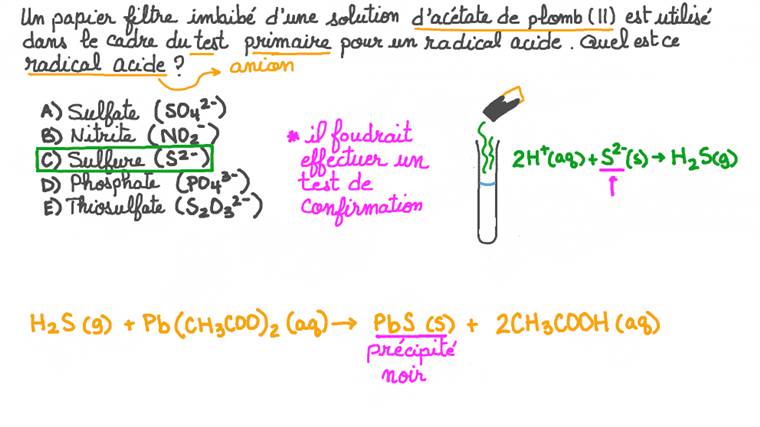 Un papier filtre imbibé d'une solution d'acétate de plomb (II) est utilisé
dans le cadre du test primaire pour un radical acide. Quel est ce
radical acide ? anion
A) Sulfate (SO₄²⁻)
B) Nitrite (NO₂⁻)
C) Sulfure (S²⁻)
D) Phosphate (PO₄³⁻)
E) Thiosulfate (S₂O₃²⁻)
* il foudrait
effectuer un
test de
confirmation
2H⁺(aq) + S²⁻(s) → H₂S(g)
H₂S (g) + Pb(CH₃COO)₂ (aq) → PbS (s) + 2CH₃COOH (aq)
précipité
noir